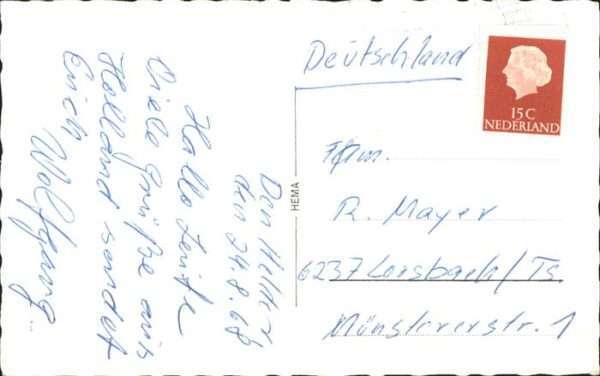 Den Helder
den 24.8.68
Hallo Leute
Viele Grüße aus
Holland sendet
Euch
Wolfgang
HEMA
Deutschland
15C
NEDERLAND
Fam.
R. Mayer
6237 Lorsbach/Ts
Münsterer str. 1